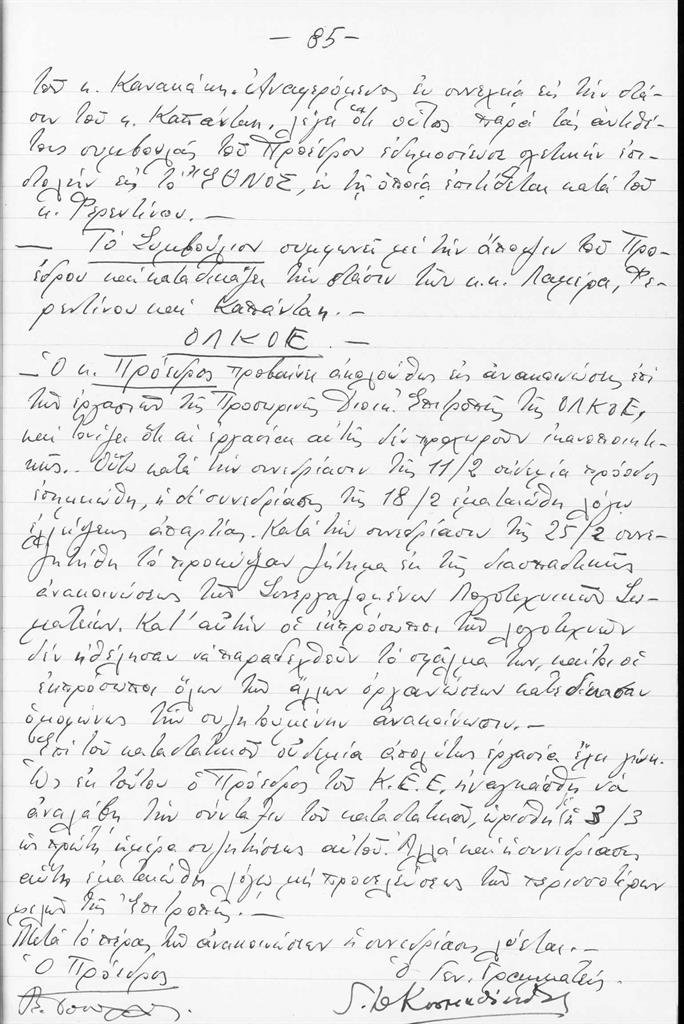 — 85 —
τοῦ κ. Κανακάκη. Ἀναφερόμενος ἐν συνεχείᾳ εἰς τὴν στά-
σιν τοῦ κ. Καπάνταη, λέγει ὅτι οὗτος παρὰ τὰς ἀντιθέ-
τους συμβουλὰς τοῦ Προέδρου ἐδημοσίευσε σχετικὴν ἐπι-
στολὴν εἰς τὸ "ΕΘΝΟΣ, ἐν τῇ ὁποίᾳ ἐπιτίθεται κατὰ τοῦ
κ. Φερεντίνου. —
— Τὸ Συμβούλιον συμφωνεῖ μὲ τὴν ἄποψιν τοῦ Προ-
έδρου καὶ καταδικάζει τὴν στάσιν τῶν κ.κ. Λαμέρα, Φε-
ρεντίνου καὶ Καπάνταη. —
ΟΛΚΟΕ. —
— Ὁ κ. Πρόεδρος προβαίνει ἀκολούθως εἰς ἀνακοινώσεις ἐπὶ
τῶν ἐργασιῶν τῆς Προσωρινῆς Διοικ. Ἐπιτροπῆς τῆς ΟΛΚΟΕ,
καὶ τονίζει ὅτι αἱ ἐργασίαι αὐτῆς δὲν προχωροῦν ἱκανοποιητι-
κῶς. Οὕτω κατὰ τὴν συνεδρίασιν τῆς 11/2 οὐδεμία πρόοδος
ἐσημειώθη, ἡ δὲ συνεδρίασις τῆς 18/2 ἐματαιώθη λόγῳ
ἐλλείψεως ἀπαρτίας. Κατὰ τὴν συνεδρίασιν τῆς 25/2 συνε-
ζητήθη τὸ προκύψαν ζήτημα ἐκ τῆς διασπαστικῆς
ἀνακοινώσεως τῶν Συνεργαζομένων Λογοτεχνικῶν Σω-
ματείων. Κατ' αὐτὴν οἱ ἐκπρόσωποι τῶν λογοτεχνῶν
δὲν ἠθέλησαν νὰ παραδεχθοῦν τὸ σφάλμα των, καίτοι οἱ
ἐκπρόσωποι ὅλων τῶν ἄλλων ὀργανώσεων κατεδίκασαν
ὁμοφώνως τὴν συζητουμένην ἀνακοίνωσιν. —
Ἐπὶ τοῦ καταστατικοῦ οὐδεμία ἀπολύτως ἐργασία ἔχει γίνει.
Ὡς ἐκ τούτου ὁ Πρόεδρος τοῦ Κ.Ε.Ε. ἠναγκάσθη νὰ
ἀναλάβῃ τὴν σύνταξιν τοῦ καταστατικοῦ, ὡρίσθη ἡ 3/3
ὡς πρώτη ἡμέρα συζητήσεως αὐτοῦ. Ἀλλὰ καὶ ἡ συνεδρίασις
αὕτη ἐματαιώθη λόγῳ μὴ προσελεύσεως τῶν περισσοτέρων
μελῶν τῆς Ἐπιτροπῆς. —
Μετὰ τὸ πέρας τῶν ἀνακοινώσεων ἡ συνεδρίασις λύεται. —
Ὁ Πρόεδρος Ὁ Γεν. Γραμματεύς.